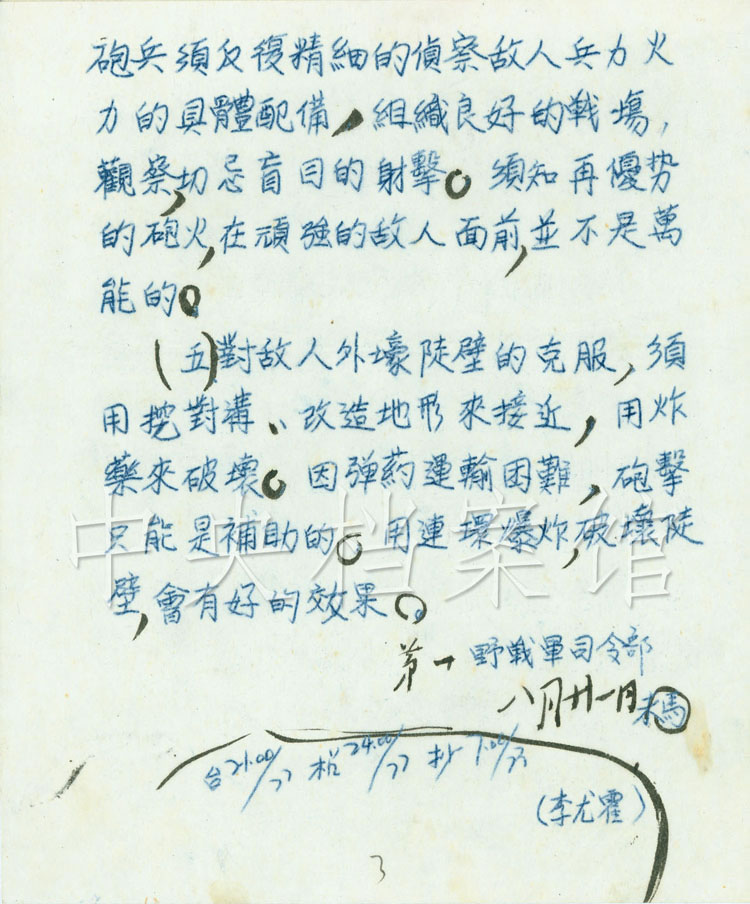 砲兵須反復精細的偵察敵人兵力火
力的具體配備，組織良好的戰場，
觀察，切忌盲目的射擊。須知再優势
的砲火，在頑強的敌人面前，並不是萬
能的。
(五)對敌人外壕陡壁的克服，須
用挖對溝、改造地形來接近，用炸
藥來破壞。因弹药運輸困難，砲擊
只能是補助的。用連環爆炸，破壞陡
壁，會有好的效果。
第一野戰軍司令部
八月廿一日未馬
台21.00/22 校24.00/22 抄7.00/23
(李尤霍)
3
中央档案馆